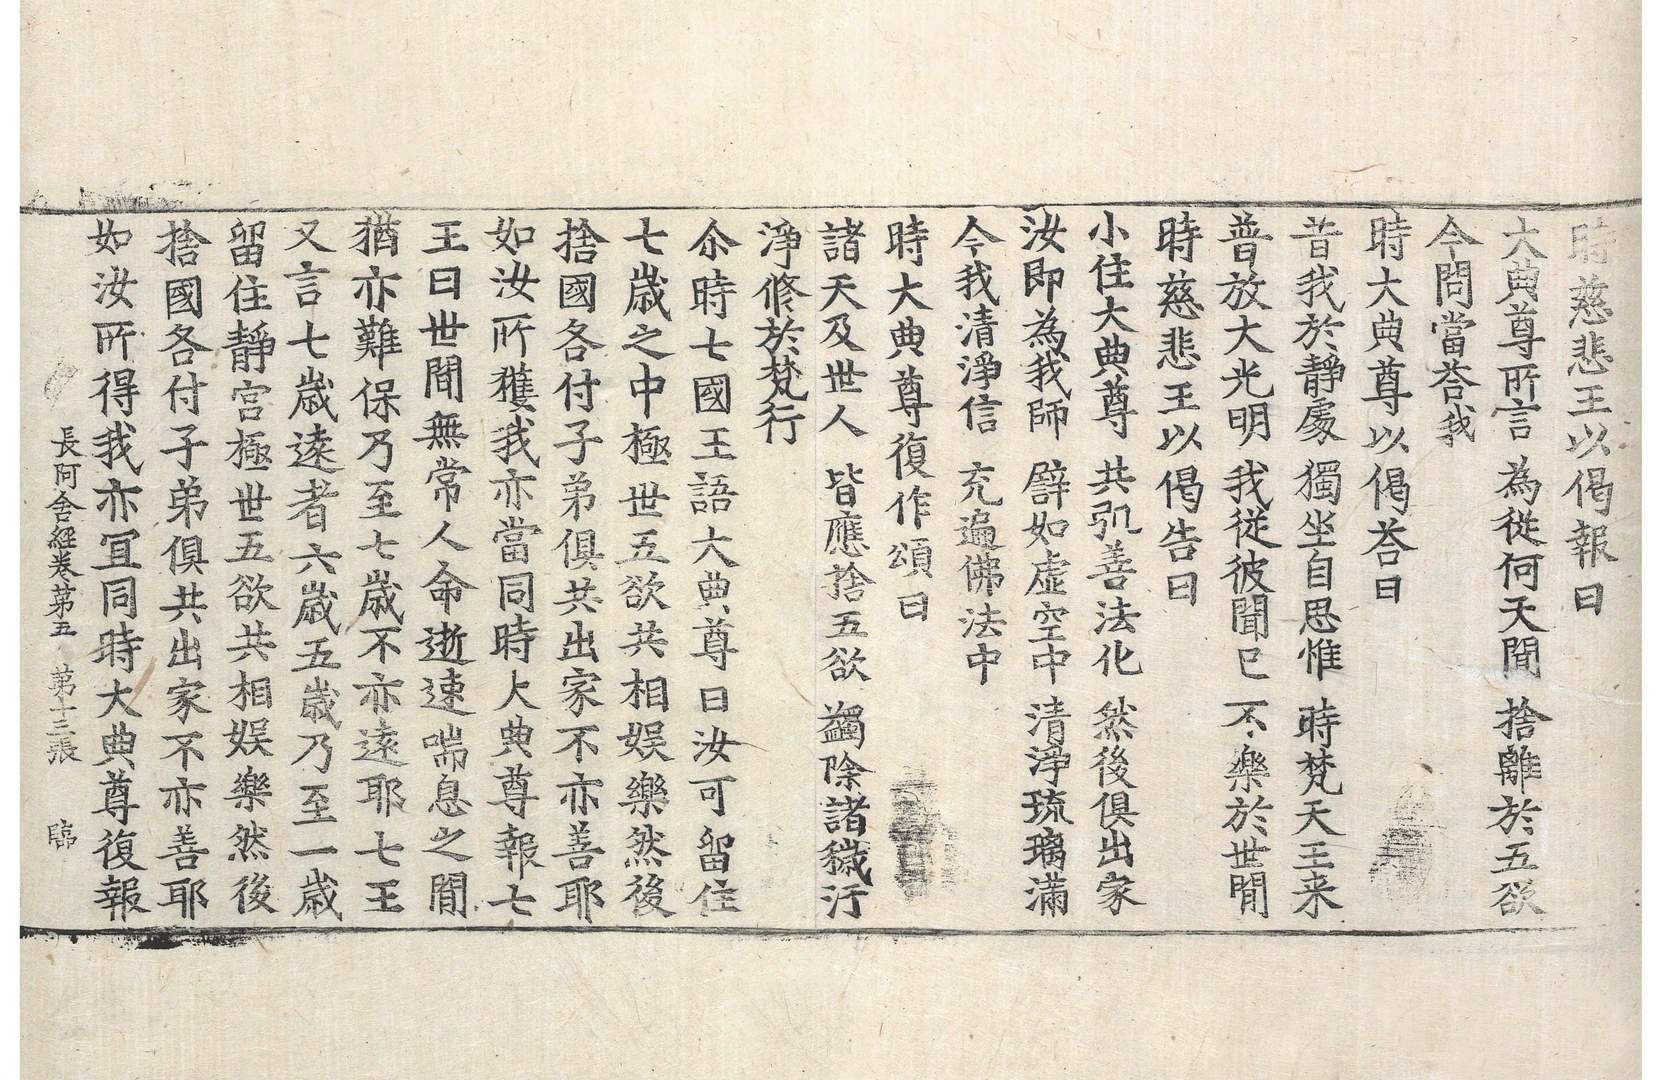 時慈悲王以偈報曰
大典尊所言　為從何天聞　捨離於五欲
今問當荅我
時大典尊以偈荅曰
昔我於靜處　獨坐自思惟　時梵天王来
普放大光明　我從彼聞已　不樂於世間
時慈悲王以偈告曰
小住大典尊　共弘善法化　然後俱出家
汝即為我師　譬如虛空中　清淨琉璃滿
今我清淨信　充遍佛法中
時大典尊復作頌曰
諸天及世人　皆應捨五欲　蠲除諸穢汙
淨修於梵行
尒時七國王語大典尊曰汝可留住
七歲之中極世五欲共相娛樂然後
捨國各付子弟俱共出家不亦善耶
如汝所獲我亦當同時大典尊報七
王曰世間無常人命逝速喘息之間
猶亦難保乃至七歲不亦遠耶七王
又言七歲遠者六歲五歲乃至一歲
留住靜宮極世五欲共相娛樂然後
捨國各付子弟俱共出家不亦善耶
如汝所得我亦宜同時大典尊復報
長阿含經卷第五　第十三張　臨